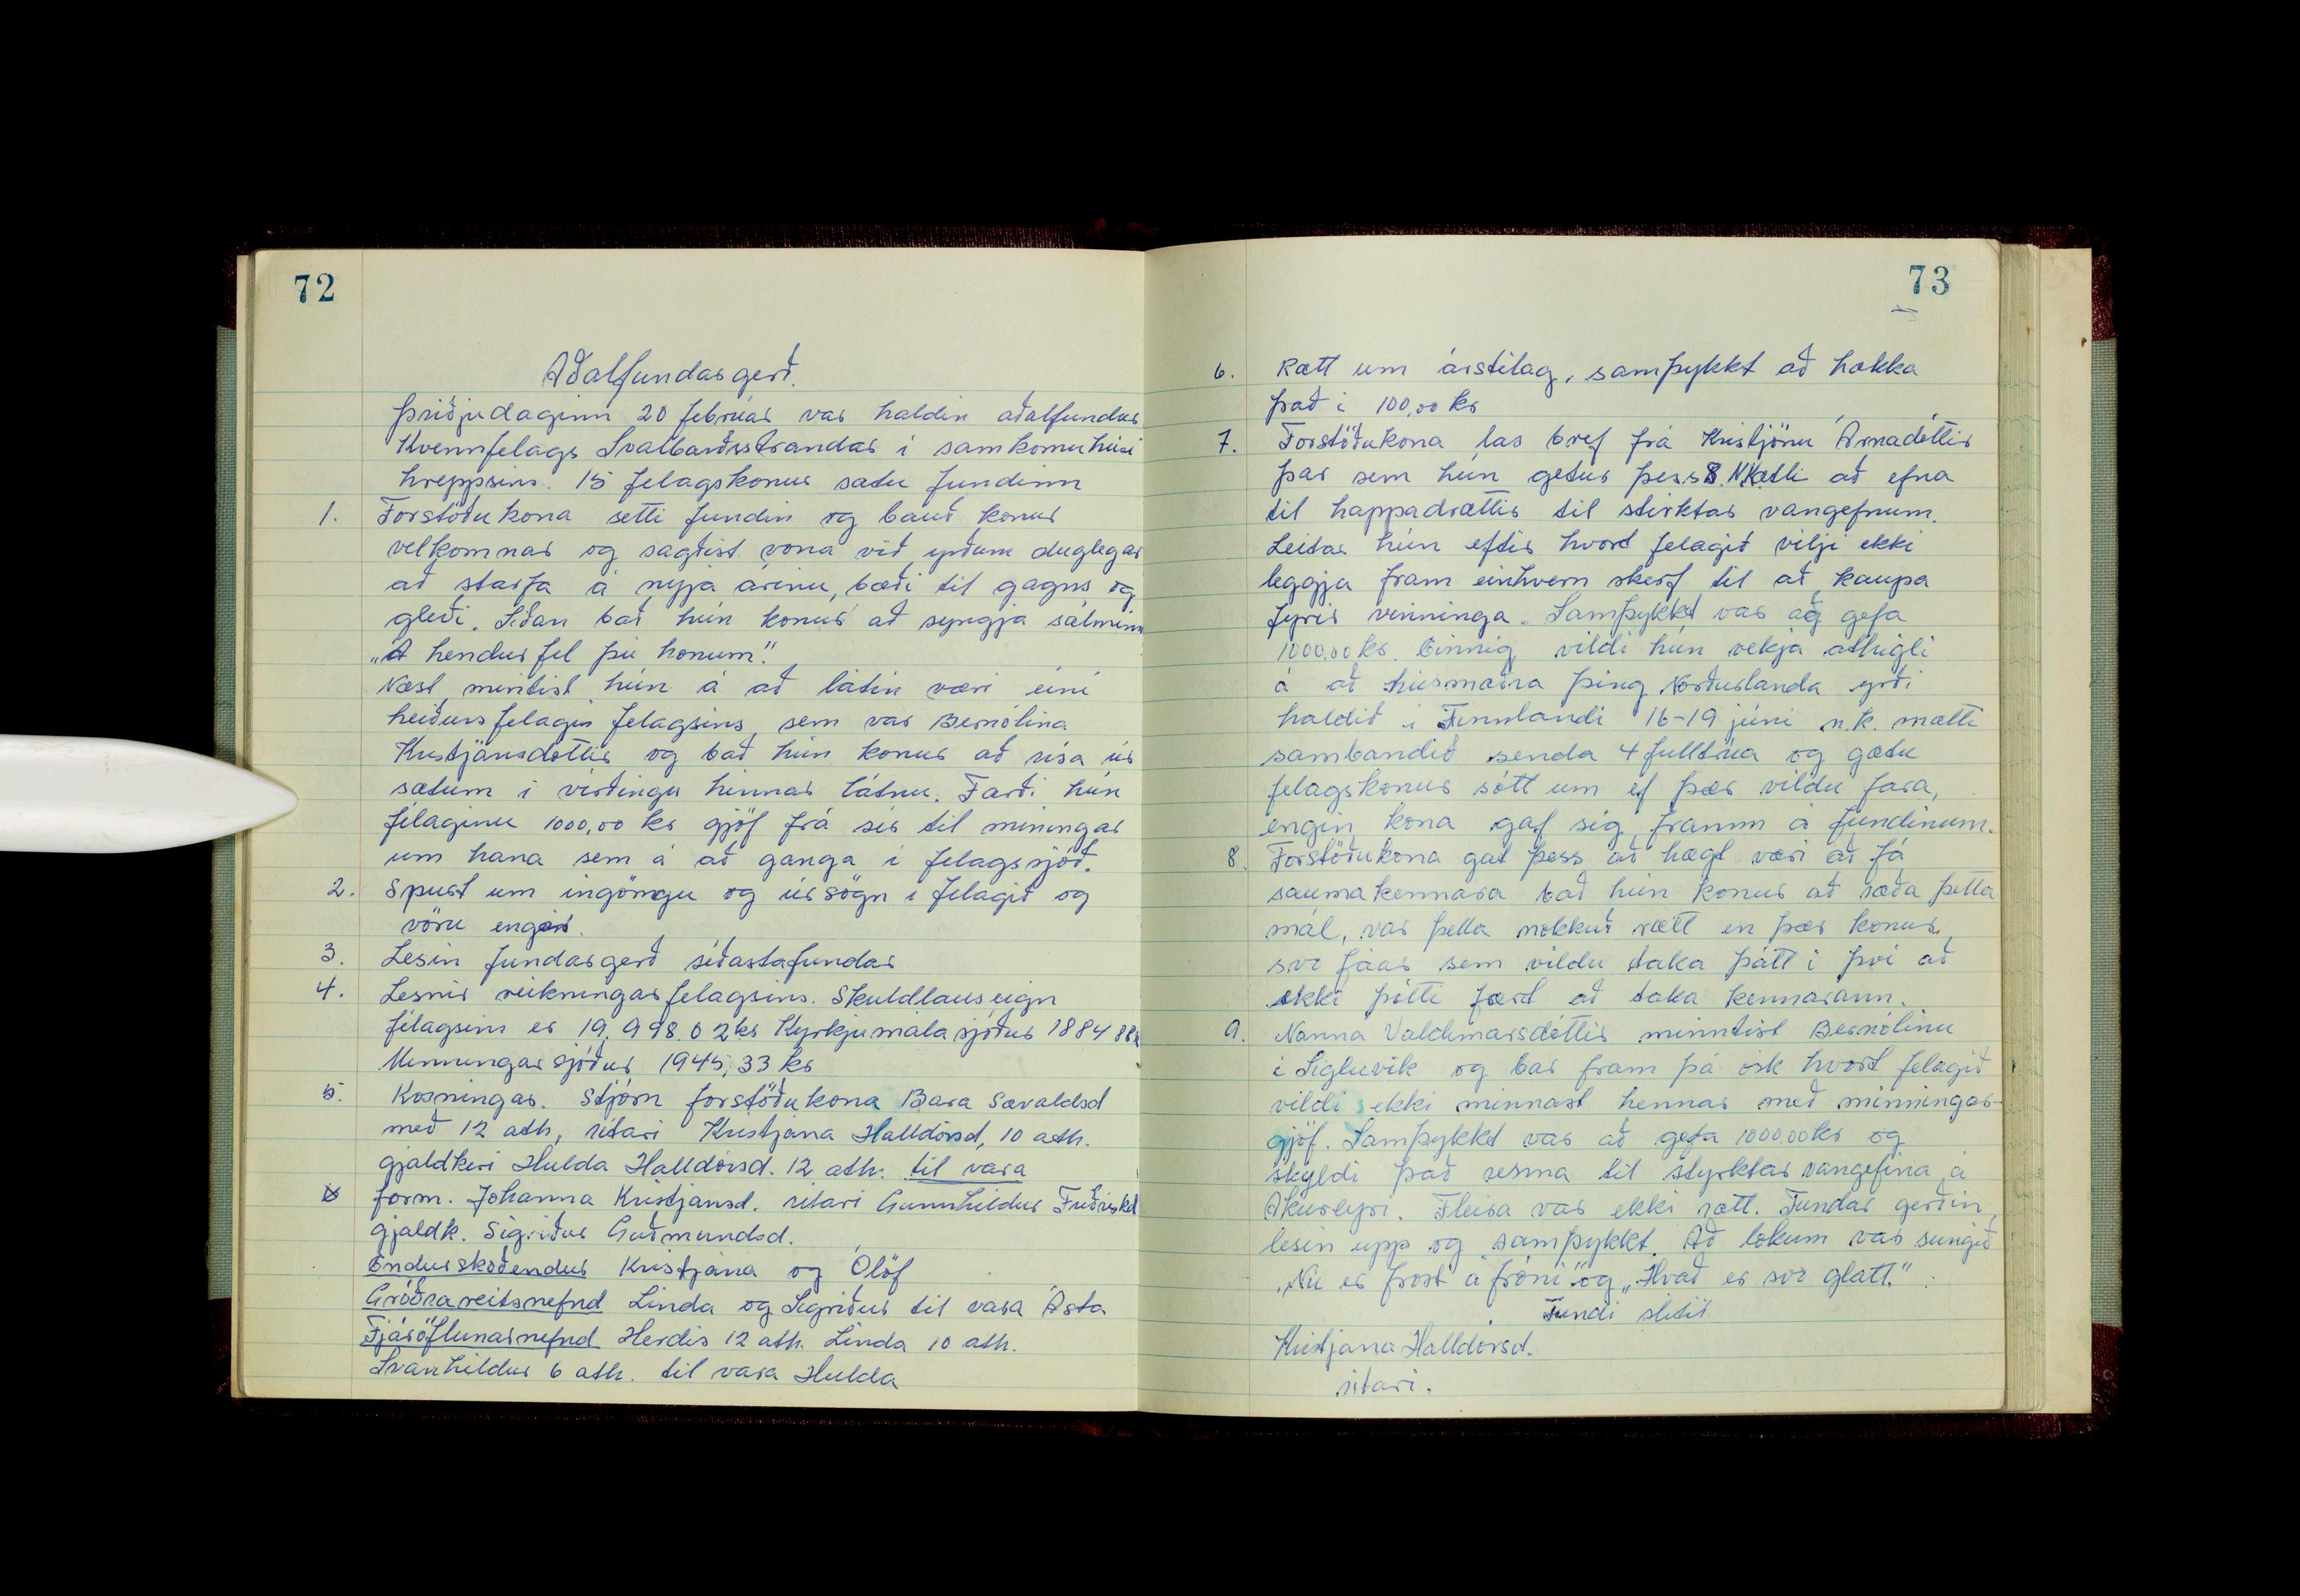 72
Aðalfundargerð.
Þriðjudaginn 20 febrúar var haldin aðalfundur
Kvennfelags Svalbarðsstrandar i samkomuhúsi
hreppsins. 15 felagskonur satu fundinn
1. Forstöðukona setti fundin og bauð konur
velkomnar og sagðist vona við yrðum duglegar
að starfa á nyja árinu, bæði til gagns og
gleði. Síðan bað hún konur að syngja sálminn
„Á hendur fel þú honum".
Næst mintist hún á að látin væri eini
heiðursfelagin felagsins, sem var Bernólina
Kristjánsdóttir og bað hún konur að rísa úr
sætum i virðingu hinnar látnu. Færði hún
félaginu 1000,00 kr gjöf frá sér til miningar
um hana sem á að ganga i felagssjóð.
2. Spurt um ingöngu og úrsögn i felagið og
vöru engar.
3. Lesin fundargerð síðastafundar
4. Lesnir reikningar felagsins. Skuldlaus eign
félagsins er 19.998.02kr Kyrkjumálasjóður 1884 88k
Minningarsjóður 1945,33 kr
5. Kosningar. Stjórn forstöðukona Bára Sævaldsd
með 12 atk, ritari Kristjana Halldórsd, 10 atk.
gjaldkeri Hulda Halldórsd. 12 atk. til vara
form. Jóhanna Kristjánsd. ritari Gunnhildur Friðriksd
gjaldk. Sigríður Guðmundsd.
Endurskoðendur Kristjána og Ólöf
Gróðrareitsnefnd Linda og Sigríður til vara Ásta
Fjáröflunarnefnd Herdís 12 atk. Linda 10 atk.
Svanhildur 6 atk. til vara Hulda
73
6. Rætt um árstilag, samþykkt að hækka
það i 100,00 kr
7. Forstöðukona las bref frá Kristjönu Árnadóttir
þar sem hún getur þess S.N.K ætli að efna
til happadrættis til stirktar vangefnum.
Leitar hún eftir hvort felagið vilji ekki
leggja fram einhvern skerf til að kaupa
fyrir vinninga. Samþykkt var að gefa
1000,00 kr. Einnig vildi hún vekja athigli
á að húsmæðra þing Norðurlanda yrði
haldið i Finnlandi 16-19 júni n.k. mætti
sambandið senda 4 fulltrúa og gætu
felagskonur sótt um ef þær vildu fara,
engin kona gaf sig framm á fundinum.
8. Forstöðukona gat þess að hægt væri að fá
saumakennara bað hún konur að ræða þetta
mál, var þetta nokkuð rætt en þær konur,
svo fáar sem vildu taka þátt i því að
ekki þótti fært að taka kennarann.
9. Nanna Valdimarsdóttir minntist Bernólinu
i Sigluvik og bar fram þá ósk hvort felagið
vildi ekki minnast hennar með minningar-
gjöf. Samþykkt var að gefa 1000.00 kr og
skyldi það renna til styrktar vangefina á
Akureyri. Fleira var ekki rætt. Fundar gerðin,
lesin upp og samþykkt. Að lokum var sungið
„Nú er frost á fróni" og „Hvað er svo glatt."
Fundi slitið
Kristjana Halldórsd.
ritari.